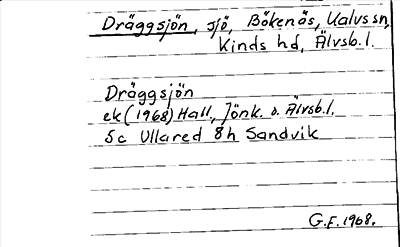 Dräggsjön, sjö, Bökenäs, Kalvs sn,
Kinds hd, Älvsb.l.
Dräggsjön
ek (1968) Hall, Jönk. o. Älvsb.l.
5c Ullared 8h Sandvik
G.F. 1968.